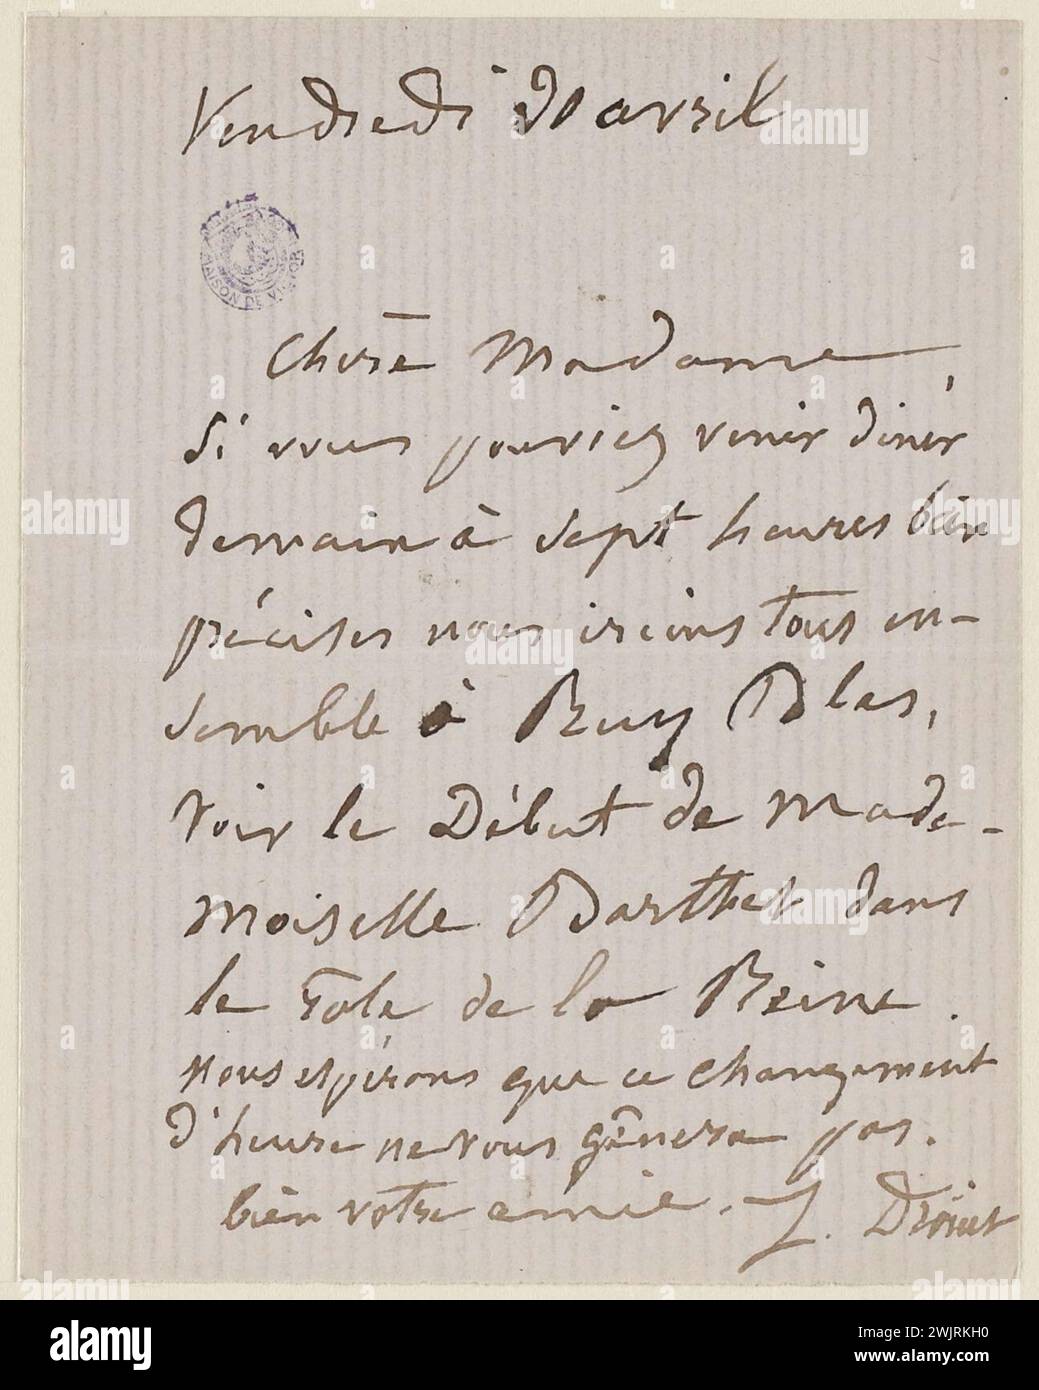 Vendredi 30 avril
MAISON DE VICTOR
Chère Madame,
Si vous pouviez venir diner
demain à Sept heures bien
précises nous irions tous en-
semble à Ruy Blas,
voir le Début de Made-
moiselle Barthet dans
le rôle de la Reine.
nous espérons que ce changement
d'heure ne vous gênera pas.
bien votre amie. J. Drouet
alamy
Image ID: 2WJRKH0
www.alamy.com